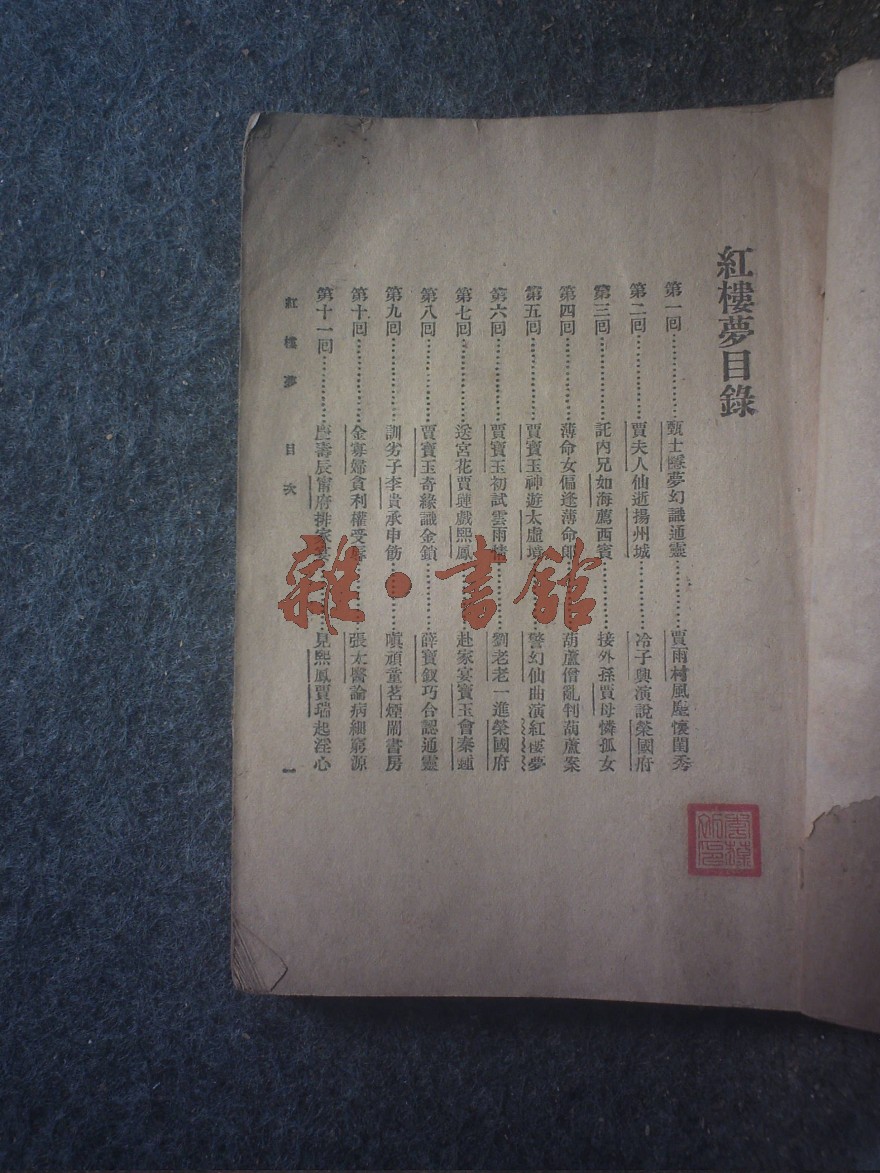 紅樓夢目錄
第一回……甄士隱夢幻識通靈……賈雨村風塵懷閨秀
第二回……賈夫人仙逝揚州城……冷子興演說榮國府
第三回……託內兄如海薦西賓……接外孫賈母憐孤女
第四回……薄命女偏逢薄命郎……葫蘆僧亂判葫蘆案
第五回……賈寶玉神遊太虛境……警幻仙曲演紅樓夢
第六回……賈寶玉初試雲雨情……劉老老一進榮國府
第七回……送宮花賈璉戲熙鳳……赴家宴寶玉會秦鍾
第八回……賈寶玉奇緣識金鎖……薛寶釵巧合認通靈
第九回……訓劣子李貴承申飭……嗔頑童茗煙鬧書房
第十回……金寡婦貪利權受辱……張太醫論病細窮源
第十一回……慶壽辰甯府排家宴……見熙鳳賈瑞起淫心
紅樓夢 目次 一
雜·書館